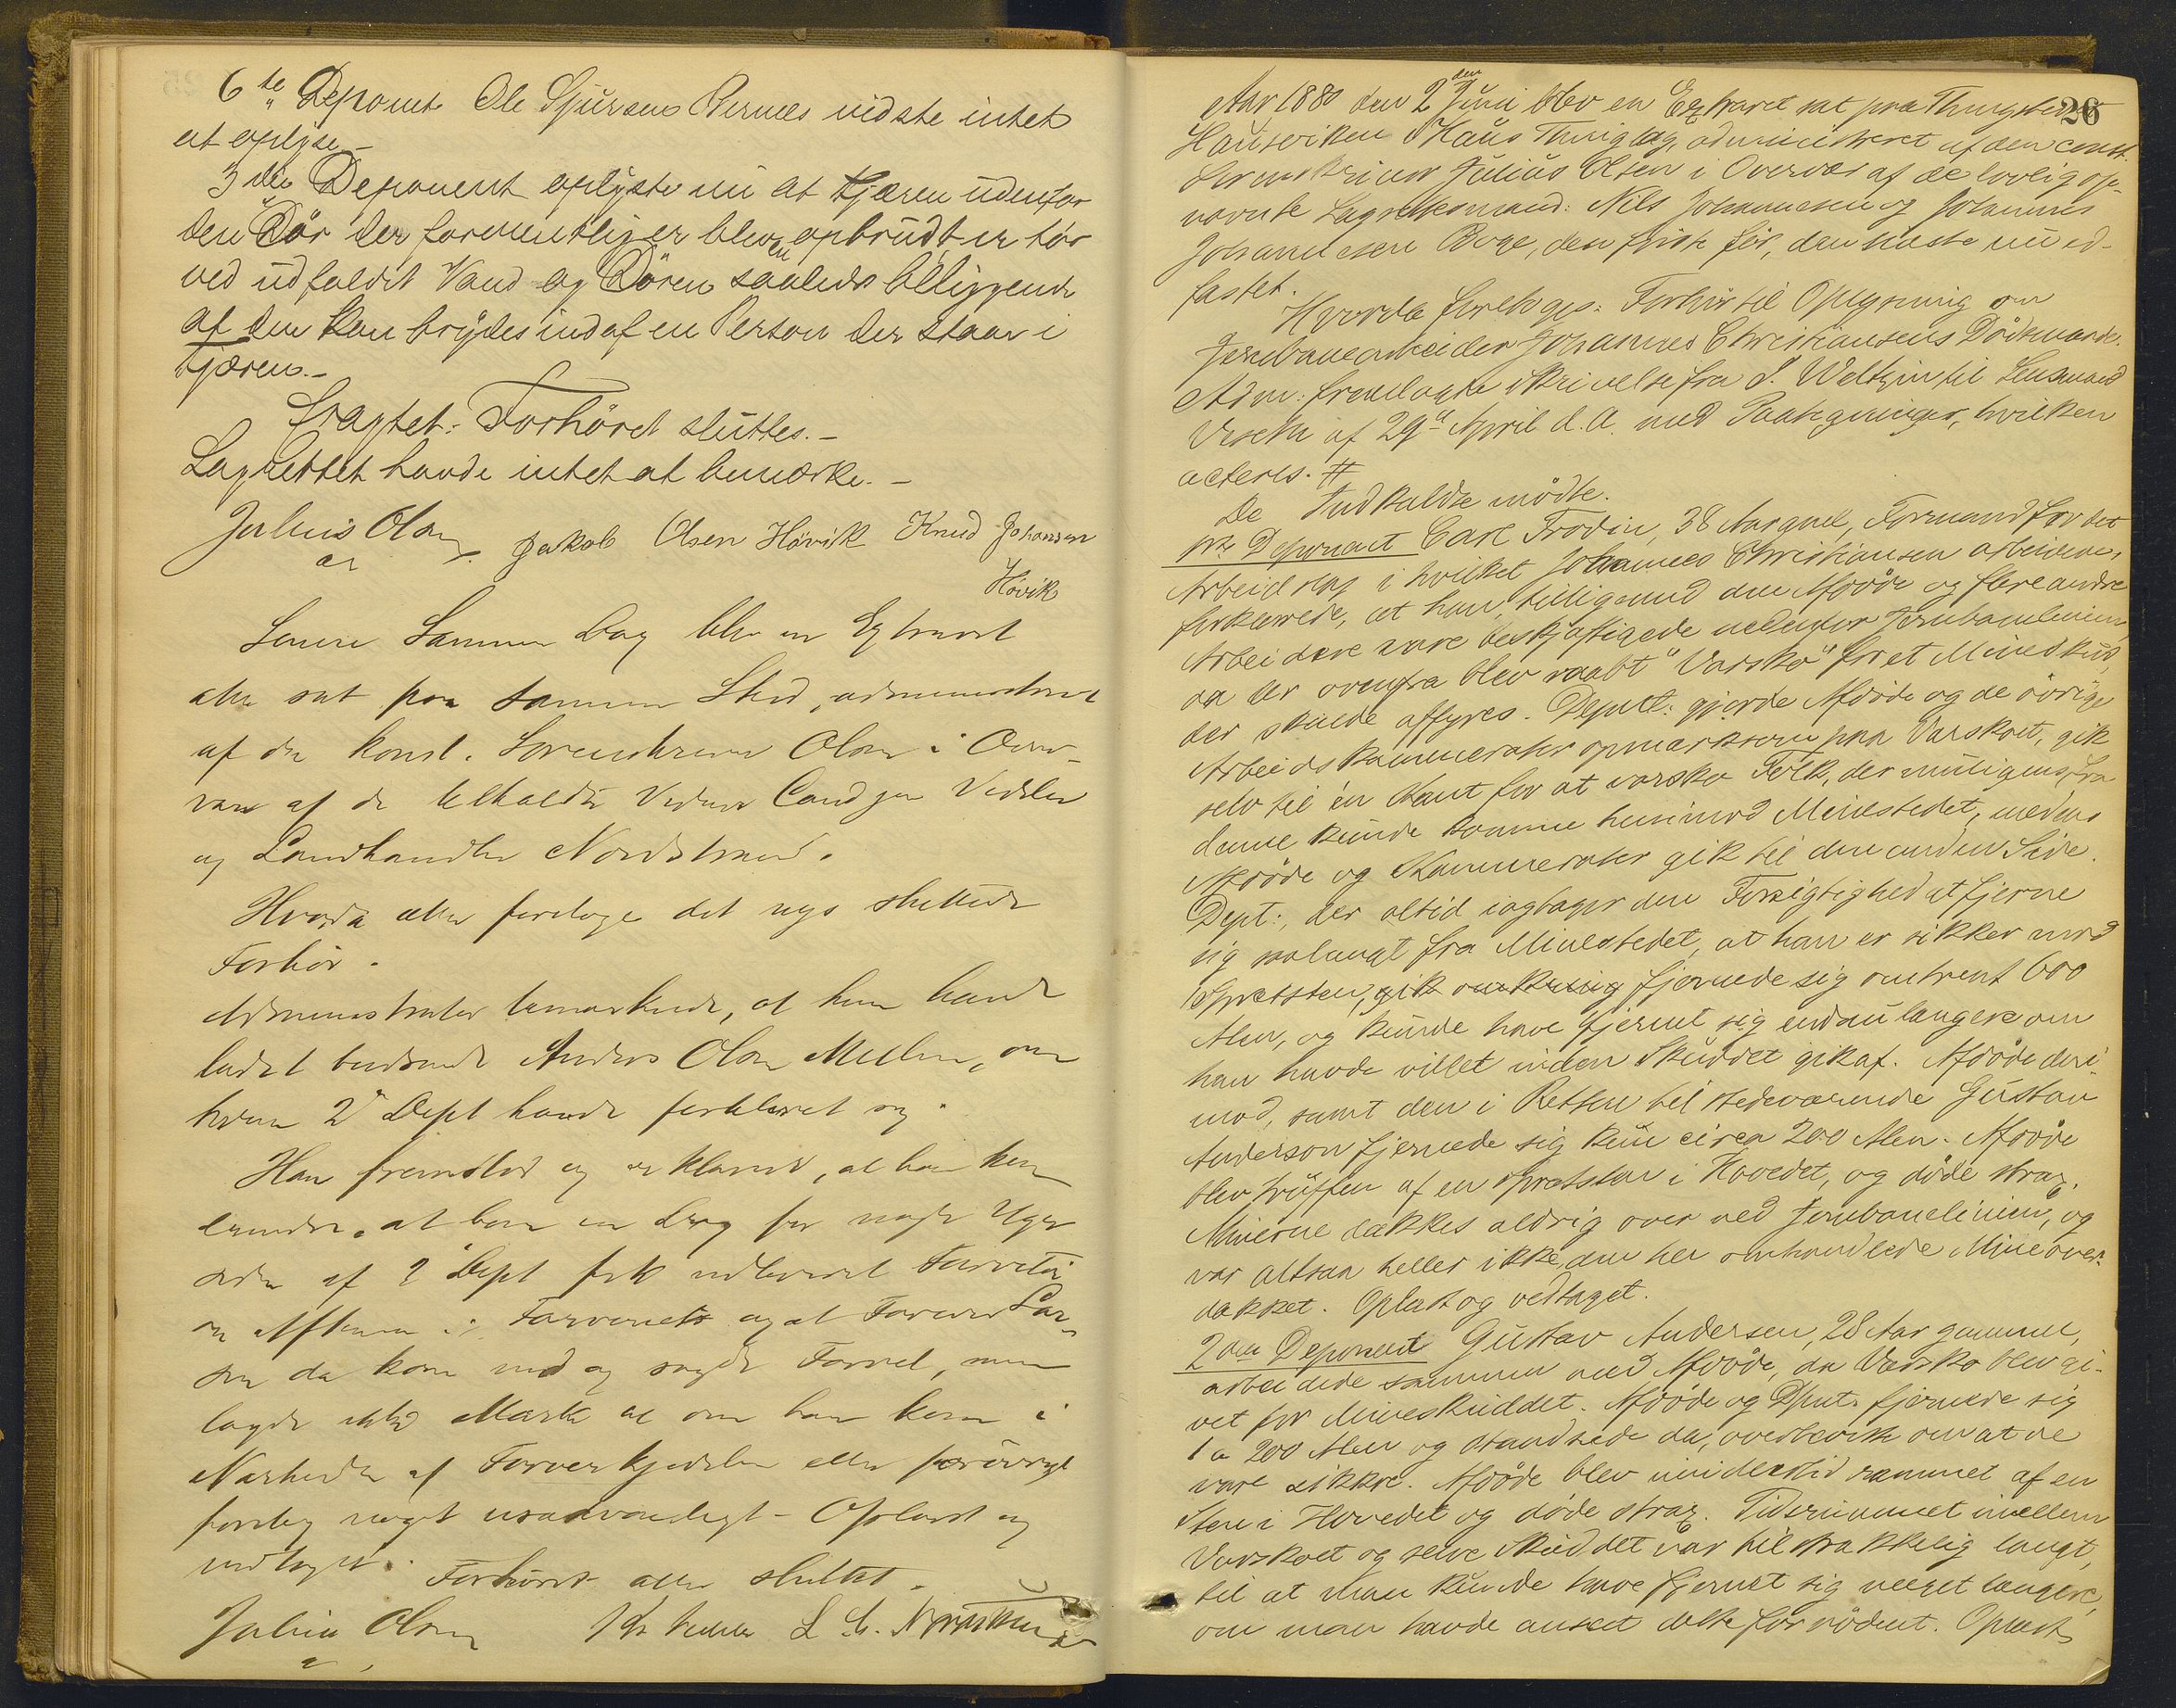 6te Deponent Ole Sjursens Bernes vidste intet
at oplyse.-
3die Deponent oplyste nu at Fjæren udenfor
den Dør der formentligen er bleven opbrudt er tør
ved udfaldet Vand og Døren saaledes beliggende
at den kan brydes ind af en Person der staar i
Fjæren.-
Eragtet: Forhøret sluttes.-
Lagrettet havde intet at bemærke.-
Julius Olsen Jakob Olsen Høvik Knud Johansen
cst Høvik
Senere Samme Dag blev en Extraret
atter sat paa samme Sted, administreret
af den konst. Sorenskriver Olsen i Over-
vær af de tilkaldte Vidner Cand jur Vedeler
og Landhandler Nordstrand.
Hvorda atter foretoges det nys sluttede
Forhør.
Administrator bemærkede, at han havde
ladet budsende Anders Olsen Mellem, om
hvem 2det Dept havde forklaret sig.
Han fremstod og erklærede, at han kan
erindre, at han en Dag for nogle Uger
siden af 2 Dept fik udleveret
en Aften i Farveriet og at Farver Lar-
sen da kom ned og sagde Farvel, men
lagde ikke Mærke til om han kom i
Nærheden af Farverkjedelen eller forøvrigt
foretog noget usædvanligt - Oplæst og
vedtaget. Forhøret atter sluttet.
Julius Olsen Vedeler L. Nordstrand
cst
26
Aar 1880 den 2den Juni blev en Extraret sat paa Thingstedet
Hausviken i Haus Thinglag, administreret af den const.
Sorenskriver Julius Olsen i Overvær af de lovlig op-
nævnte Lagrettesmænd: Nils Johannesen og Johannes
Johannesen Boge, den første før, den næste nu ed-
fæstet.
Hvorda foretoges: Forhør til Oplysning om
Jernbanearbeider Johannes Christiansens Dødsmaade.
Adm: fremlagte Skrivelse fra S. Weltzin til Lensmand
af 29de April d. A. med Paategninger, hvilken
acteres. #
De Indkaldte mødte.
1ste Deponent Carl Frodin, 38 Aar gml, Formand for det
Arbeidslag i hvilket Johannes Christiansen arbeidede,
forklarede, at han, tilligemed den Afdøde og flere andre
Arbeidere vare beskjæftigede nedenfor Jernbanelinien,
da der ovenfra blev raabt "Varsko" for et Mineskud,
der skulde affyres. Deptt: gjorde Afdøde og de øvrige
Arbeidskammerater opmærksom paa Varskoet, gik
selv til én Kant for at varsko Folk, der muligens fra
denne kunde komme henimod Minestedet, medens
Afdøde og Kammerater gik til den anden Side.
Dept:, der altid iagtager den Forsigtighed at fjerne
sig saalangt fra Minestedet, at han er sikker mod
Sprætsten, gik omkring fjernede sig omtrent 600
Alen, og kunde have fjernet sig endnu længere om
han havde villet inden Skuddet gik af. Afdøde deri-
mod, samt den i Retten tilstedeværende Gustav
Anderson fjernede sig kun circa 200 Alen. Afdøde
blev truffen af en Sprætsten i Hovedet, og døde strax.
Minerne dækkes aldrig over ved Jernbanelinien, og
var altsaa heller ikke den her omhandlede Mine over-
dækket. Oplæst og vedtaget.
2den Deponent Gustav Andersen, 28 Aar gammel,
arbeidede sammen med Afdøde, da Varsko blev gi-
vet for Mineskuddet. Afdøde og Dptnt: fjernede sig
1 a 200 Alen og standsede da, overbevist om at de
vare sikkre. Afdøde blev imidlertid rammet af en
Sten i Hovedet og døde strax. Tidsrummet imellem
Varskoet og selve Skuddet var tilstrækkelig langt,
til at man kunde have fjernet sig meget længere,
om man havde anseet dette for nødvent. Oplæst